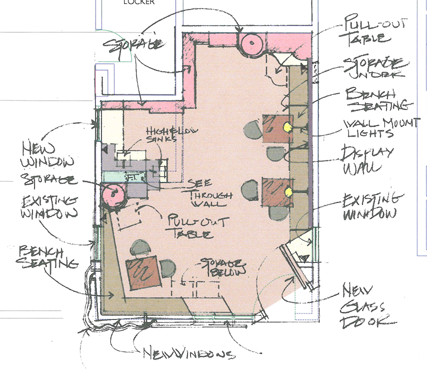 LOCKER
STORAGE
PULL-OUT
TABLE
STORAGE
BENCH
SEATING
WALL MOUNT
LIGHTS
DISPLAY
WALL
EXISTING
WINDOW
NEW
GLASS
DOOR
HIGH/LOW
SINKS
SEE
THROUGH
WALL
PULL-OUT
TABLE
STORAGE
BELOW
NEW
WINDOW
STORAGE
EXISTING
WINDOW
BENCH
SEATING
NEW WINDOWS